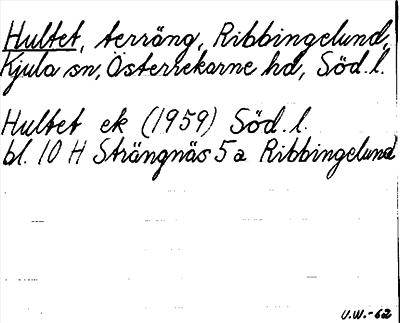 Hultet, terräng, Ribbingelund,
Kjula sn, Österrekarne hd, Söd. l.
Hultet ek (1959) Söd. l.
bl. 10 H Strängnäs 5 a Ribbingelund
U.W.-62